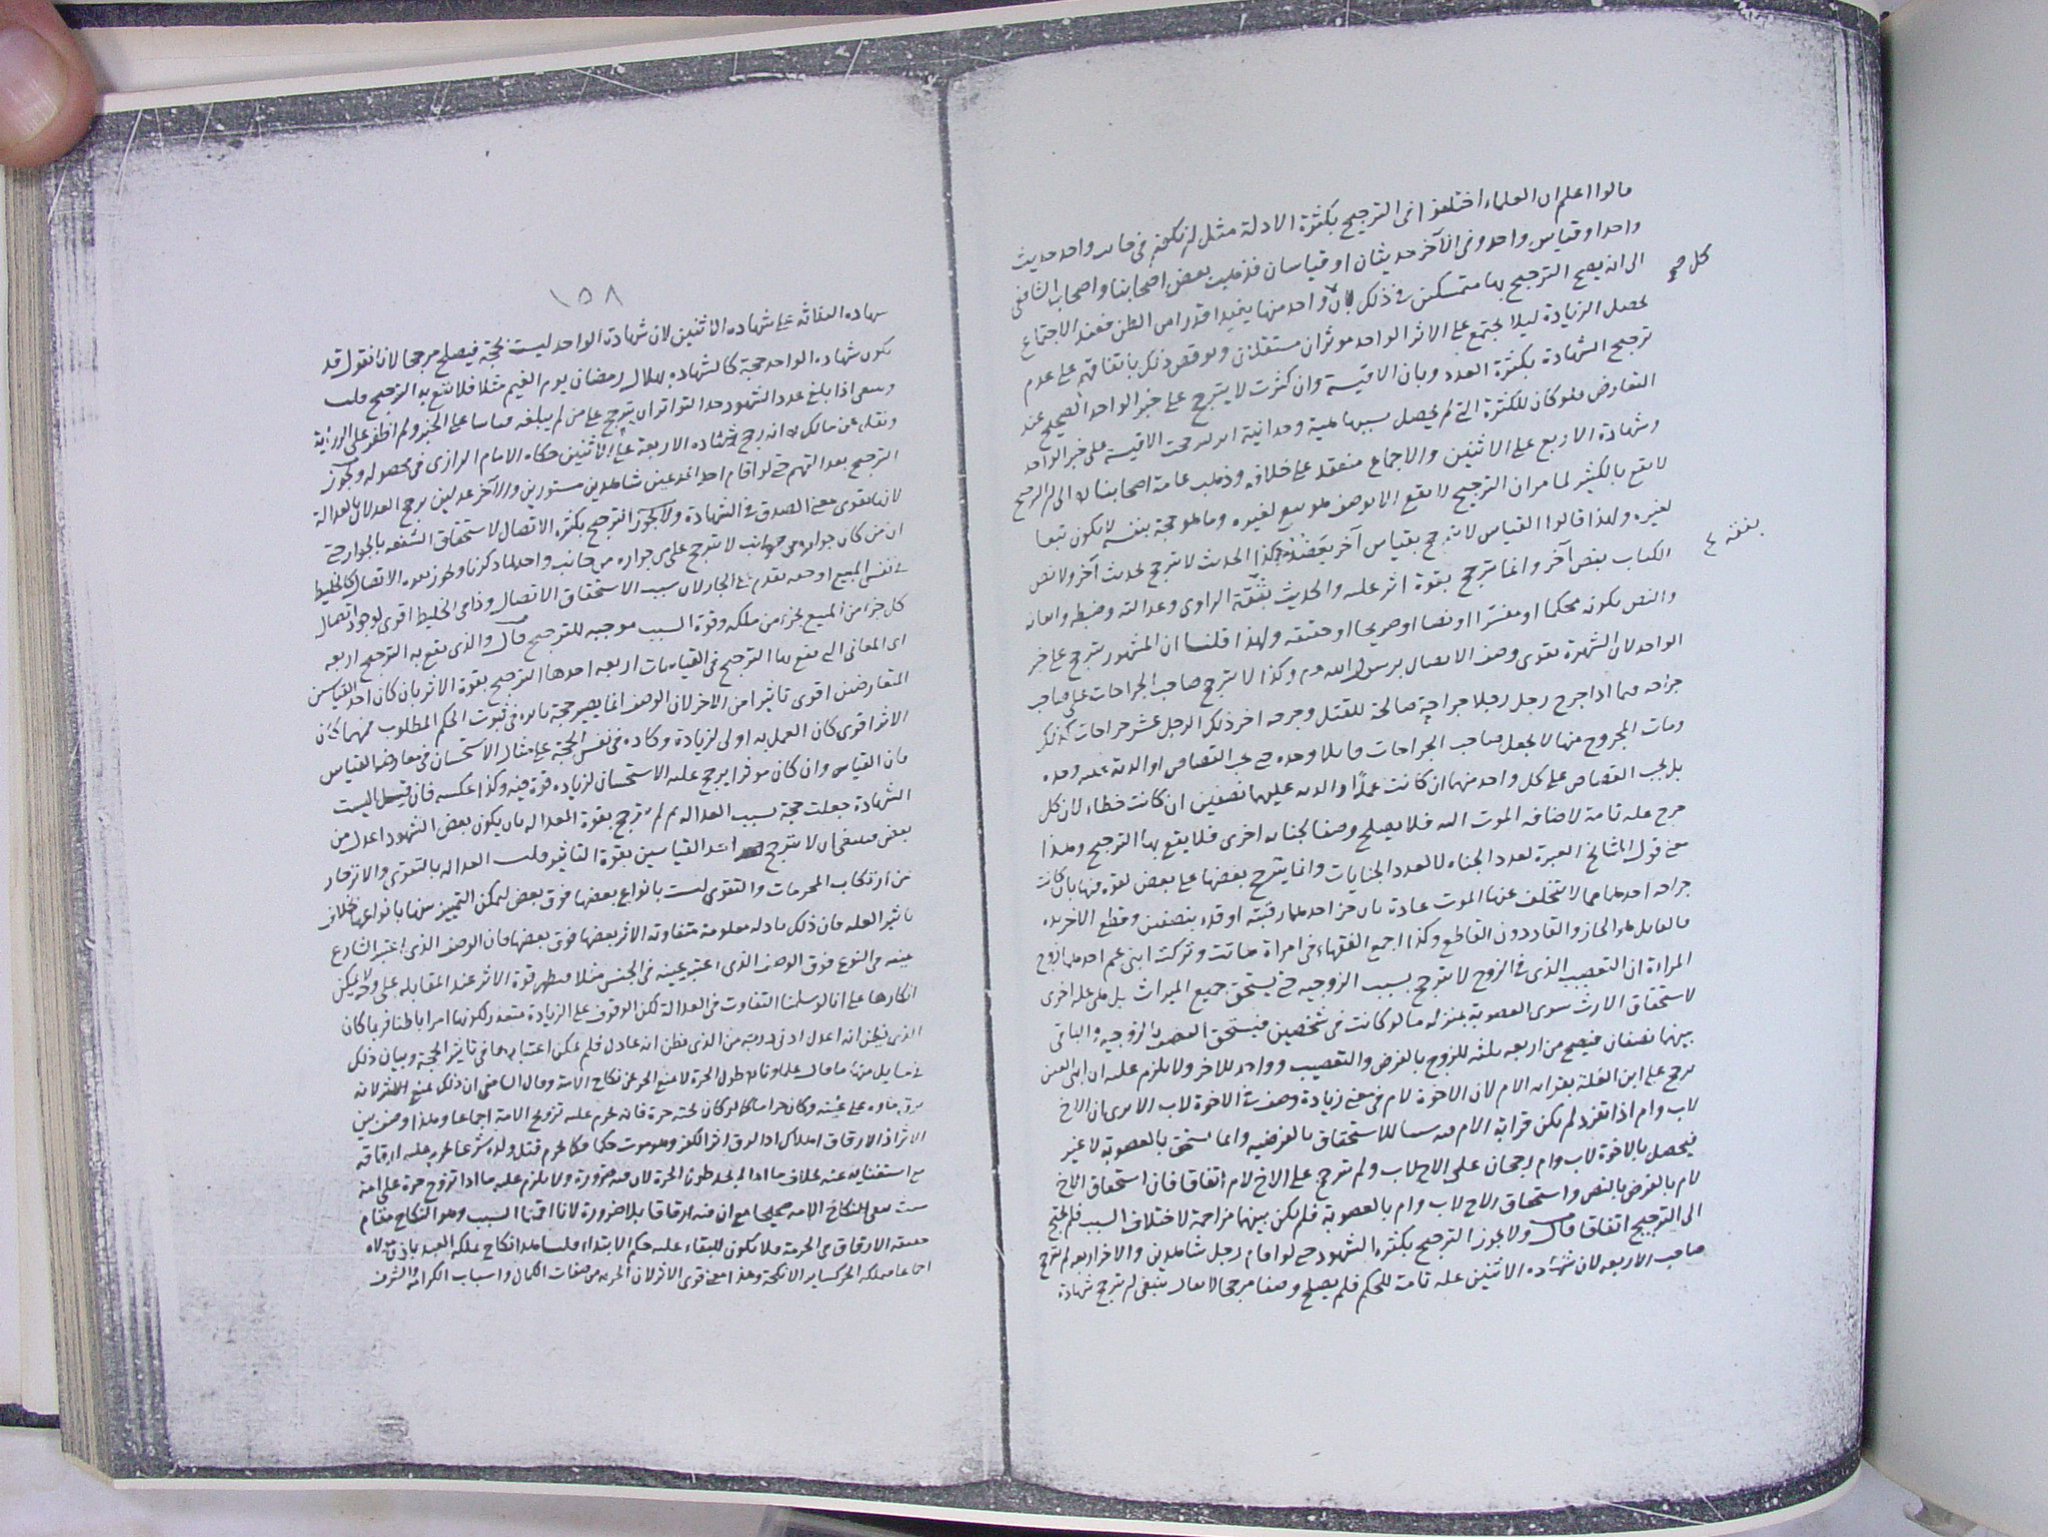 قالوا اعلم ان العلماء اختلفوا فى الترجيح بكثرة الادلة مثل ان يكون فى جانب واحد حديث
واحد او قياس واحد وفى الآخر حديثان او قياسان فذهب بعض اصحابنا واصحاب الشافعى
الى انه يصح الترجيح بها متمسكين فى ذلك بان واحد منها يفيد قدرا من الظن فعند الاجتماع
كل صح
يحصل الزيادة ليلا يجتمع على الاثر الواحد موثران مستقلان ونوقض ذلك باتفاقهم على عدم
ترجيح الشهادة بكثرة العدد وبان الاقيسة وان كثرت لا يترجح على خبر الواحد الصحيح عند
التعارض فلو كان للكثرة التى لم يحصل بسببها هيئة وحدانية اثر لرجحت الاقيسة على خبر الواحد
وشهادة الاربع على الاثنين والاجماع منعقد على خلافه وذهب عامة اصحابنا الى ان الترجيح
لا يقع بالكثير لما مر ان الترجيح لا يقع الا بوصف هو تبع لغيره وما هو حجة بنفسه لا يكون تبعا
لغيره ولهذا قالوا القياس لا يترجح بقياس آخر يعضده وكذا الحديث لا يترجح بحديث آخر ولا نص
بفقه
الكتاب بنص آخر وانما يترجح بقوة اثر علته والحديث بفقه الراوى وعدالته وضبطه واتقانه
والنص بكونه محكما او مفسرا او نصا او صريحا او حقيقة ولهذا قلنا ان المشهور يترجح على خبر
الواحد لان الشهرة تقوى وصف الاتصال برسول الله وكذا لا يترجح صاحب الجراحات على صاحب
جراحة فيما اذا جرح رجل رجلا جراحة صالحة للقتل وجرحه اخر ذلك الرجل عشر جراحات كذلك
ومات المجروح منها لا يجعل صاحب الجراحات قاتلا وحده حتى يجب القصاص او الدية عليه وحده
بل يجب القصاص على كل واحد منهما ان كانت عمدا والدية عليهما نصفين ان كانت خطاء لان كل
جرح علة تامة لاضافة الموت اليه فلا يصلح وصفا لجناية اخرى فلا يقع بها الترجيح وهذا
معنى قول المشايخ العبرة لعدد الجناة لا لعدد الجنايات وانما يترجح بعضها على بعض لقوة فيها بان كانت
جراحة احدهما مما لا يتخلف عنها الموت عادة بان حز احدهما رقبته او قده بنصفين وقطع الاخر يده
فالقاتل هو الحاز والقاد دون القاطع وكذا اجمع الفقهاء فى امراة ماتت وتركت ابنى عم احدهما زوج
المراة ان التعصيب الذى فى الزوج لا يترجح بسبب الزوجية حتى يستحق جميع الميراث بل هى علة اخرى
لاستحقاق الارث سوى العصوبة بمنزلة ما لو كانت فى شخصين فيستحق النصف بالزوجية والباقى
بينهما نصفان فيصح من اربعة ثلثة للزوج بالفرض والتعصيب وواحد للاخر ولا يلزم عليه ان
لاب وام اذا تفرد لم يكن قرابة الام فيه سببا للاستحقاق بالفرضية وانما يستحق بالعصوبة لا غير
فيحصل بالاخوة لاب وام رجحان على الاخ لاب ولم يترجح على الاخ لام اتفاقا فان استحقاق الاخ
لام بالفرض بالنص واستحقاق الاخ لاب وام بالعصوبة فلم يكن بينهما مزاحمة لاختلاف السبب فلم يحتج
الى الترجيح اتفاقا قال ولا يجوز الترجيح بكثرة الشهود حتى لو اقام رجل شاهدين والاخر اربعة لم يترجح
صاحب الاربعة لان شهادة الاثنين علة تامة للحكم فلم يصلح وصفا مرجحا لا يقال ينبغى ان يترجح شهادة
١٥٨
شهادة الثلاثة على شهادة الاثنين لان شهادة الواحد ليست بحجة فيصلح مرجحا لانا نقول قد
يكون شهادة الواحد حجة كالشهادة بهلال رمضان يوم الغيم مثلا فلا يقع به الترجيح قلت
وينبغى اذا بلغ عدد الشهود حد التواتر ان يترجح على من لم يبلغه قياسا على الخبر ولم اظفر على الرواية
ونقل عن مالك انه رجح شهادة الاربعة على الاثنين حكاه الامام الرازى فى محصوله ويجوز
الترجيح بعدالتهم حتى لو اقام احد المدعيين شاهدين مستورين والآخر عدلين يرجح العدلان بالعدالة
لانها تقوى معنى الصدق فى الشهادة ولا يجوز الترجيح بكثرة الاتصال لاستحقاق الشفعة بالجوار حتى
ان من كان جواره من جوانب لا يترجح على من جواره من جانب واحد لما ذكرنا ويجوز بقوة الاتصال كالخليط
فى نفس المبيع او حقه يقدم على الجار لان سبب الاستحقاق الاتصال وذا فى الخليط اقوى لوجود اتصال
كل جزء من المبيع بجزء من ملكه وقوة السبب موجبة للترجيح قال والذى يقع به الترجيح اربعة
اى المعانى التى يقع بها الترجيح فى القياسات اربعة احدها الترجيح بقوة الاثر بان كان احد القياسين
المتعارضين اقوى تاثيرا من الاخر لان الوصف انما يصير حجة باثره فى ثبوت الحكم المطلوب فمهما كان
الاثر اقوى كان العمل به اولى لزيادة وكادة فى نفس الحجة على مثال الاستحسان فى معارضة القياس
فان القياس وان كان موثرا يرجح عليه الاستحسان لزيادة قوة فيه وكذا عكسه فان قيل اليست
الشهادة جعلت حجة بسبب العدالة ثم لم يترجح بقوة العدالة بان يكون بعض الشهود اعدل من
بعض فينبغى ان لا يترجح احد القياسين بقوة التاثير قلت العدالة بالتقوى والانزجار
عن ارتكاب المحرمات والتقوى ليست بانواع بعضها فوق بعض ليمكن التمييز بينها بانواعها بخلاف
تاثير العلة فان ذلك بادلة معلومة متفاوتة الاثر بعضها فوق بعضها فان الوصف الذى اعتبر الشارع
عينه فى النوع فوق الوصف الذى اعتبر عينه فى الجنس مثلا فيظهر قوة الاثر عند المقابلة على وجه لا يمكن
انكارها على انا لو سلمنا التفاوت فى العدالة لكن الوقوف على الزيادة متعذر لكونها امرا باطنا فربما كان
الذى يظن انه اعدل ادنى درجة من الذى نظن انه عادل فلم يمكن اعتبارها فى تاثير الحجة وبيان ذلك
فى مسايل منها ما قال علماونا ان طول الحرة لا يمنع الحر عن نكاح الامة وقال الشافعى ان ذلك يمنع الحر لانه
يرق ماءه على غنية وكان حراما كالذى كان تحته حرة فانه يحرم عليه تزويج الامة اجماعا وهذا وصف بين
الاثر اذ الارقاق اهلاك اذ الرق اثر الكفر وهو موت حكما فكما يحرم قتل ولده شرعا يحرم عليه ارقاقه
مع استغنائه عنه بخلاف ما اذا لم يجد طول الحرة لان فيه ضرورة ولا يلزم عليه ما اذا تزوج حرة على امة
حيث يبقى نكاح الامة صحيحا مع ان فيه ارقاقا بلا ضرورة لانا اقمنا السبب وهو النكاح مقام
حقيقة الارقاق فى الحرمة فلا يكون للبقاء عليه حكم الابتداء قلنا هذا نكاح يملكه العبد باذن مولاه
اجماعا فيملكه الحر كساير الانكحة وهذا معنى قوى الاثر لان الحرية من صفات الكمال واسباب الكرامة والشرف